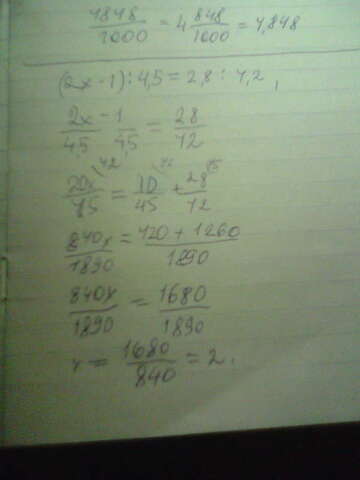 4848/1000 = 4 848/1000 = 4,848
(2x - 1) : 4,5 = 2,8 : 4,2
2x/4,5 - 1/4,5 = 28/42
42 42 45
20x/45 = 10/45 + 28/42
840x/1890 = 420 + 1260/1890
840x/1890 = 1680/1890
x = 1680/840 = 2.